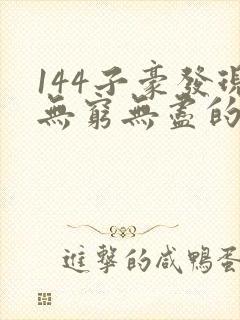 144子豪發現
無窮無盡的
進擊的咸鴨蛋